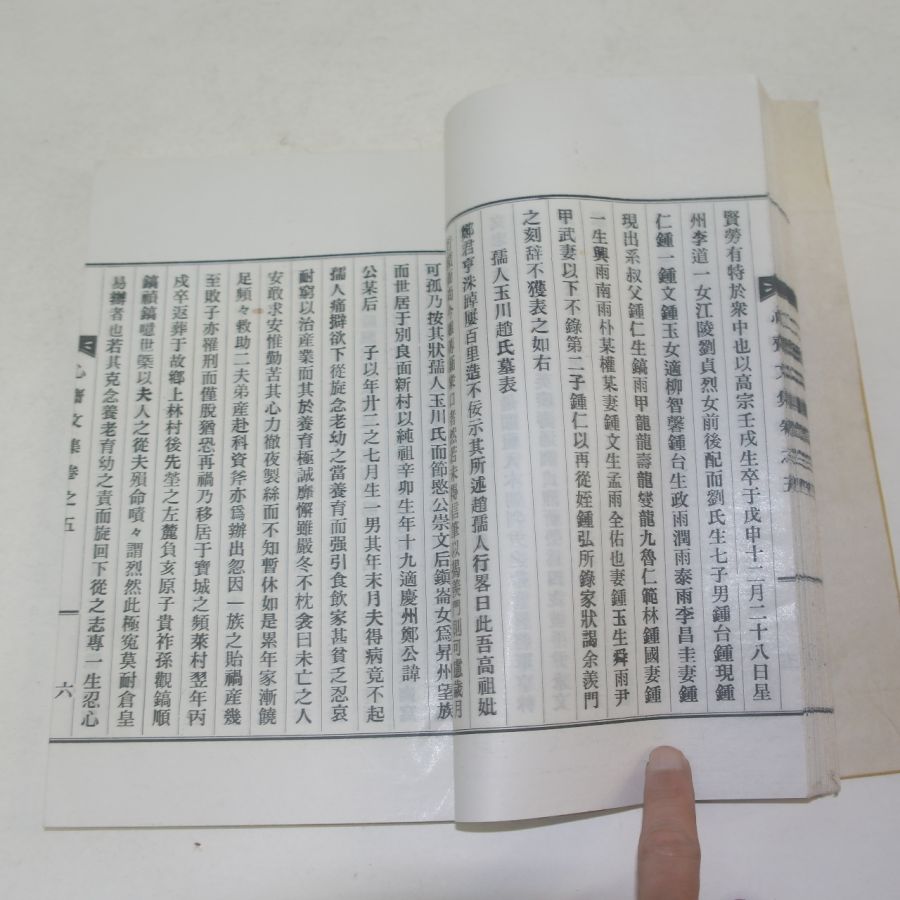 賢勞有特於衆中也以高宗壬戌生卒于戊申十二月二十八日星
州李道一女江陵劉貞烈女前後配而劉氏生七子男鍾台鍾現鍾
仁鍾一鍾文鍾玉女適柳智馨鍾台生政雨潤雨泰雨李昌圭妻鍾
現出系叔父鍾仁生鎬雨甲龍龍壽龍燮龍九魯仁範林鍾國妻鍾
一生興雨南雨朴某權某妻鍾文生孟雨全佑也妻鍾玉生舜雨尹
甲武妻以下不錄第二子鍾仁以再從姪鍾弘所錄家狀謁余羨門
之刻辞不獲表之如右
孺人玉川趙氏墓表
鄭君亨洙踔屢百里造不佞示其所述趙孺人行畧曰此吾高祖妣
可孤乃按其狀孺人玉川氏而節愍公崇文后鎭崙女爲昇州望族
而世居于別良面新村以純祖辛卯生年十九適慶州鄭公諱
公某后 子以年廿二之七月生一男其年末月夫得病竟不起
孺人痛擗欲下從旋念老幼之當養育而强引食飮家甚貧乏忍哀
耐窮以治産業而其於養育極誠靡懈雖嚴冬不枕衾曰未亡之人
安敢求安惟勤苦其心力徹夜製絲而不知暫休如是累年家漸饒
足頻々救助二夫弟産赴科資斧亦爲辦出忽因一族之貽禍産幾
至敗子亦罹刑而僅脫猶恐再禍乃移居于寶城之頻萊村翌年丙
戌卒返葬于故鄉上林村後先塋之左麓負亥原子貴祚孫觀鎬順
鎬禎鎬噫世槩以夫人之從夫殞命嘖々謂烈然此極寃莫耐倉皇
易辦者也若其克念養老育幼之責而旋回下從之志專一生忍心
心齋文集卷之五
六